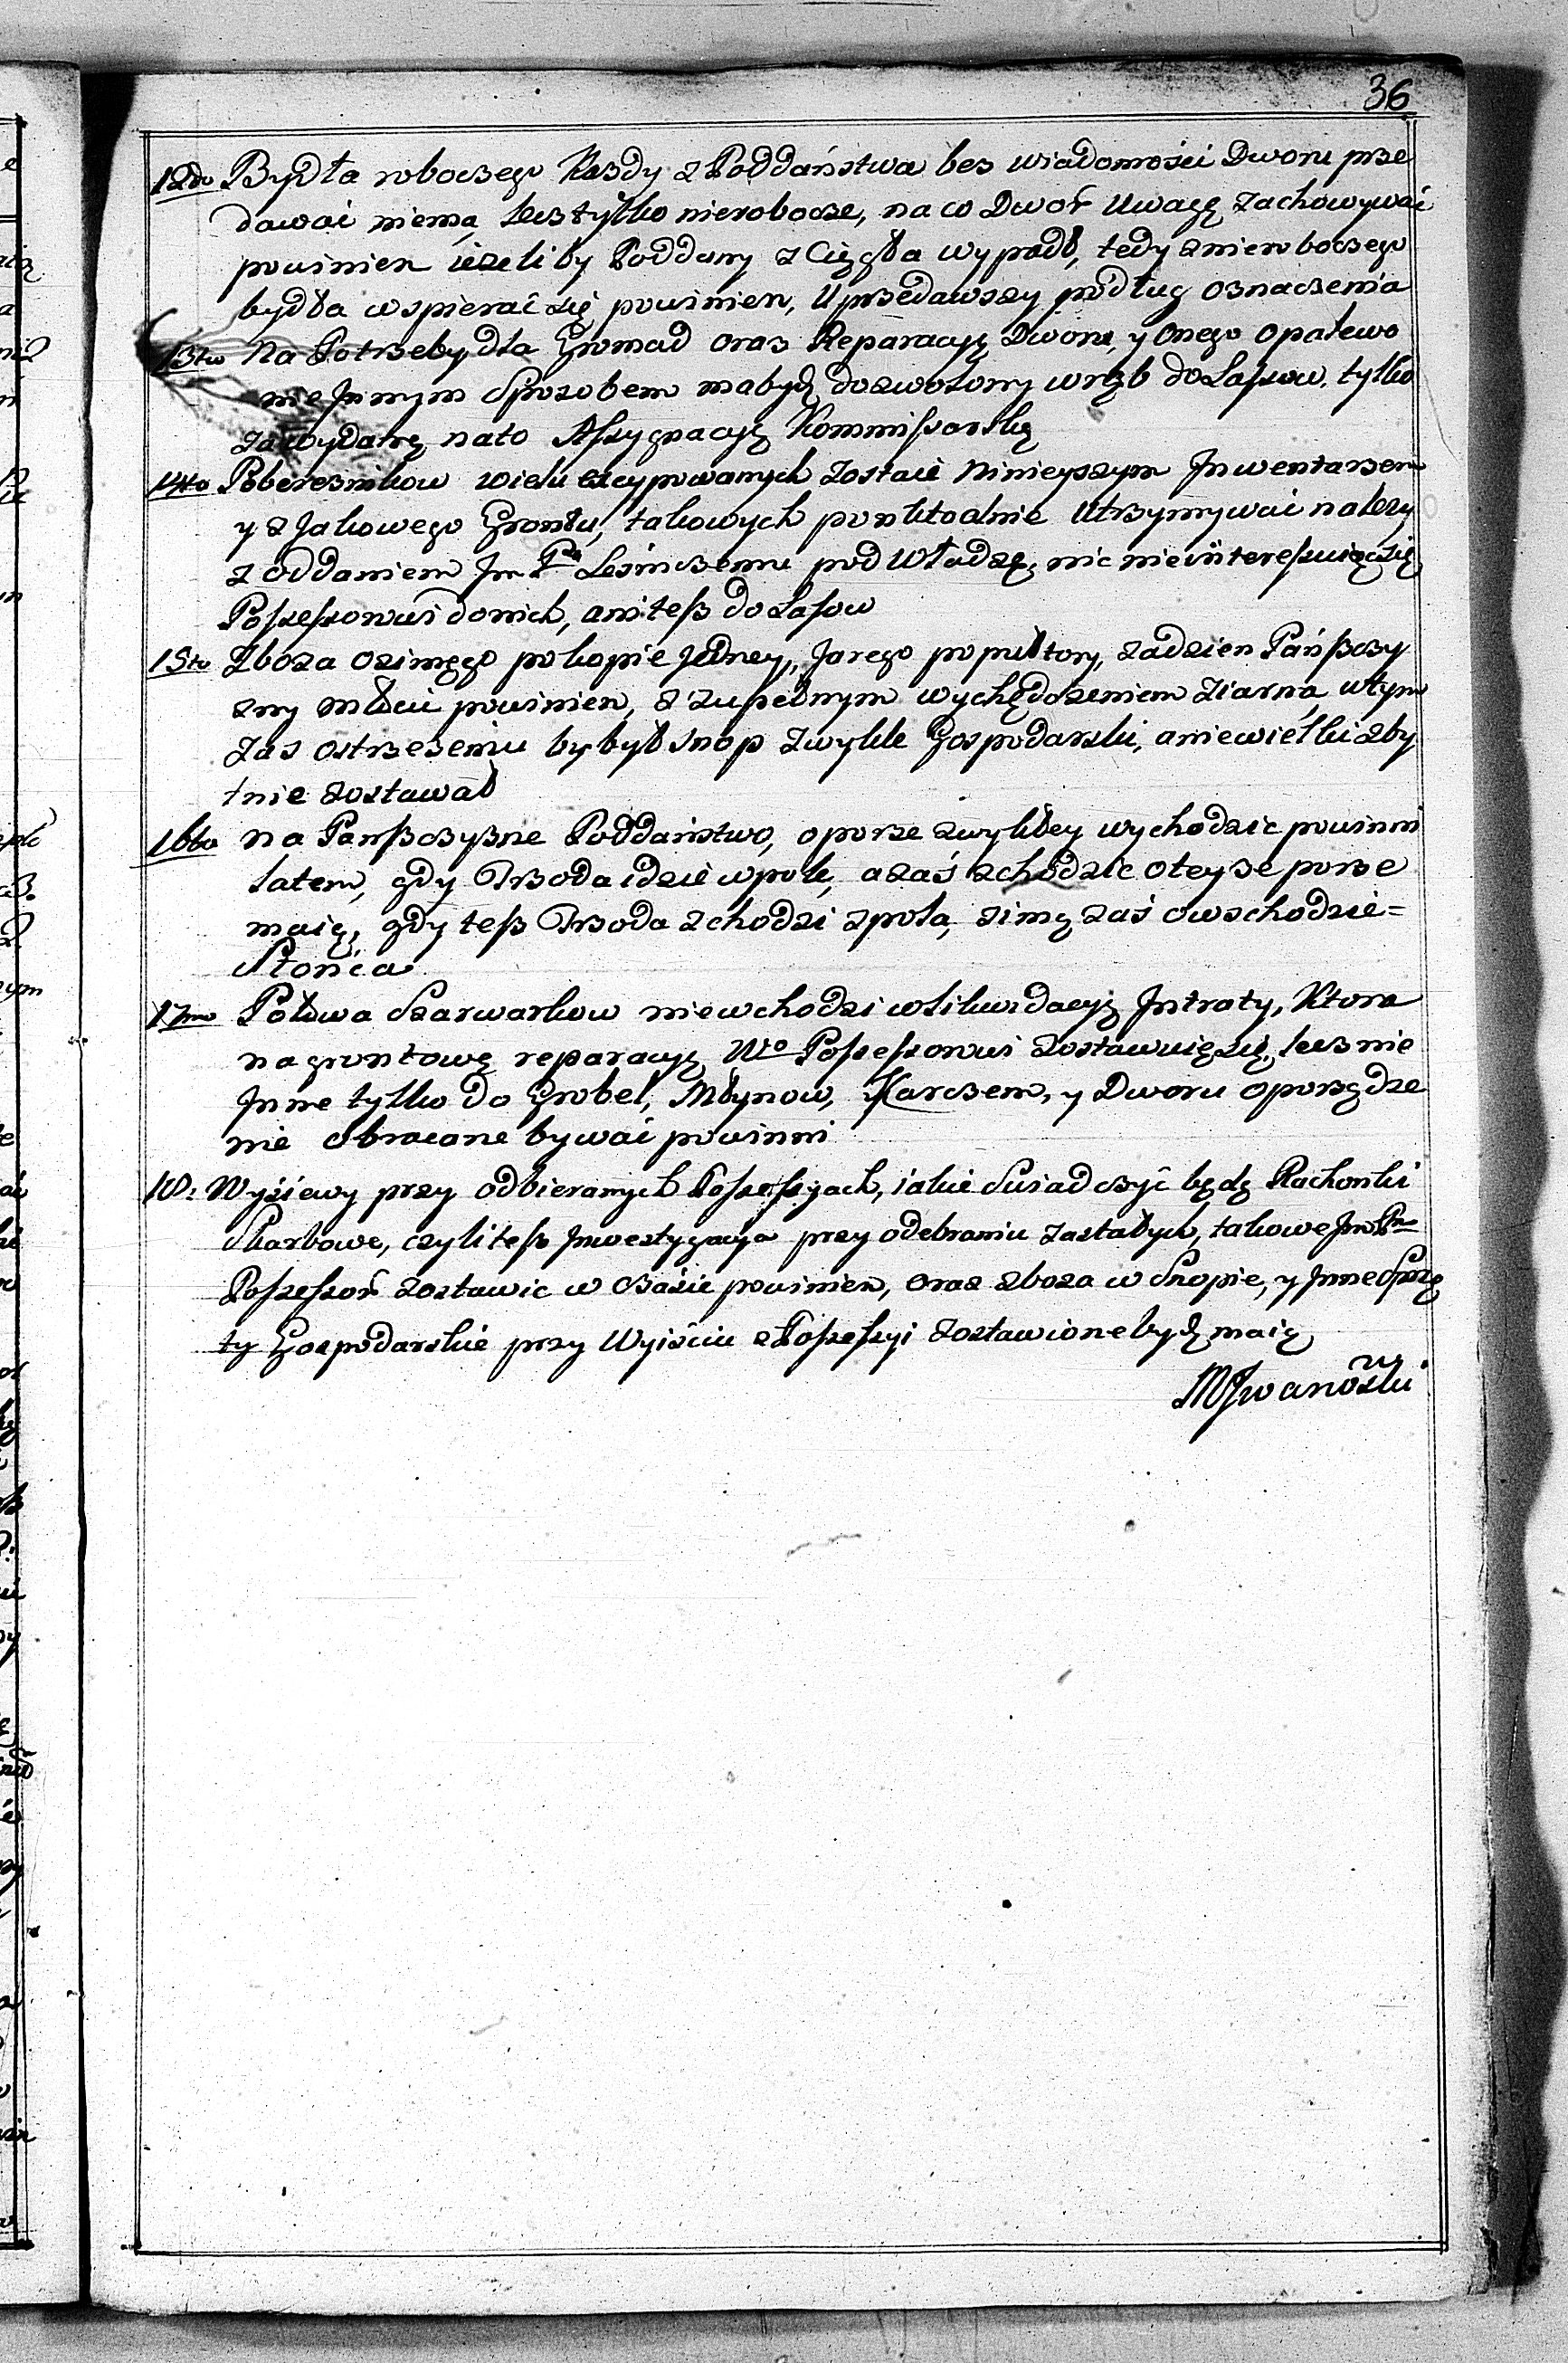 36
12do Bydła roboczego Kazdy z Poddaństwa bez wiadomości Dworu prze
dawać niema, lecz tylko nierobocze, na co Dwór Uwagę zachowywać
powinien ieżeliby Poddany z Cięgła wypadł, tedy z nieroboczego
bydła wspierać się powinien, Uprzedawszy podług oznaczenia
13tio Na Potrzeby dla Gromad oraz Reparacyę Dworu, y onego opalewo
nie Jnnym Sposobem ma bydź dozwolony wrąb do Lassow, tylko
za wydatną nato Assygnacyą Kommissarską
14to Pobereznikow wielu excypowanych zostaie Ninieyszym Jnwentarzem
y z Jakowego Gruntu, takowych punktoalnie Utrzymywać należy
z oddaniem Jm Pa Leśniczemu pod Władzę, nic nie interessuiąc się
Possessorowi do nich, ani teß do Lasow
15to Zboza ozimęgo po kopie Jedney, Jarego po pułtory, za dzien Pańßczy
zny młócić powinien, z zupełnym wychędożeniem ziarna, w tym
zas ostrzezeniu by był snop zwykle Gospodarski, a niewielki zby
tnie zostawał
16to na Panßczyßne Poddaństwo, o porze zwykłey wychodzic powinni
latem, gdy Trzoda idzie w pole, a zaś zchodzic o teyze porze
maią, gdy teß Trzoda zchodzi z pola, zimą zaś o wschodzie=
Słońca
17mo Połowa Szarwarkow niewchodzi w likwidacyę Jntraty, Ktora
na gruntowę reparacyę Wo Possessorowi zostawuię się, lecz nie
Jnne tylko do Grobel, Młynow, Karczem, y Dworu oporządze
nie obracane bywać powinni
18: Wysiewy przy odbieranych Possessyach, iakie Suiadczyć będą Rachonki
Skarbowe, czyli teß Jnwestygacya przy odebraniu zastałych, takowe Jm Pn
Possessor zostawic w czasie powinien, oraz zboza w Snopie, y Jnne Sprzę
ty Gospodarskie przy Wyiściu z Possessyi zostawione bydź maią
MJwanowski